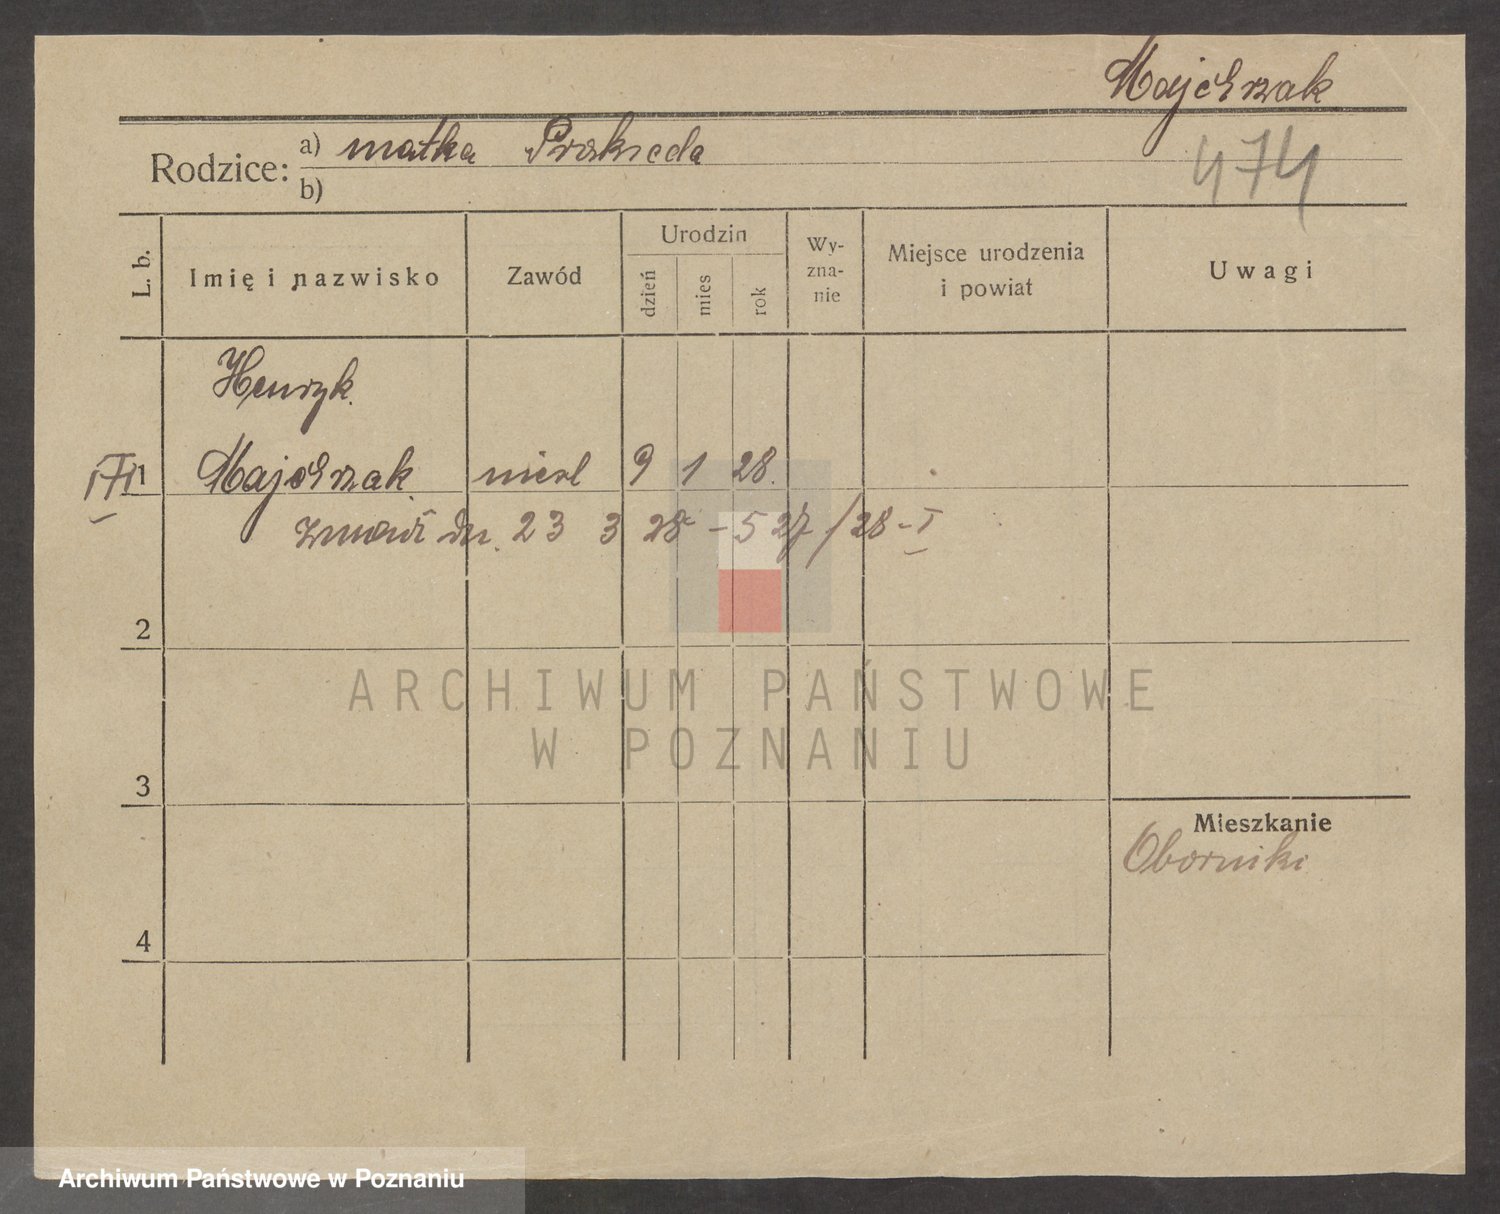 Majchrzak
474
Rodzice: a) matka
b)
L. b.
Imię i nazwisko
Zawód
Urodzin
dzień
mies
rok
Wy-
zna-
nie
Miejsce urodzenia
i powiat
Uwagi
Henryk.
1 Majchrzak nierl 9 1 28.
dn. 23 3 28 - 527/28-I
2
3
4
Mieszkanie
Oborniki
ARCHIWUM PAŃSTWOWE
W POZNANIU
Archiwum Państwowe w Poznaniu